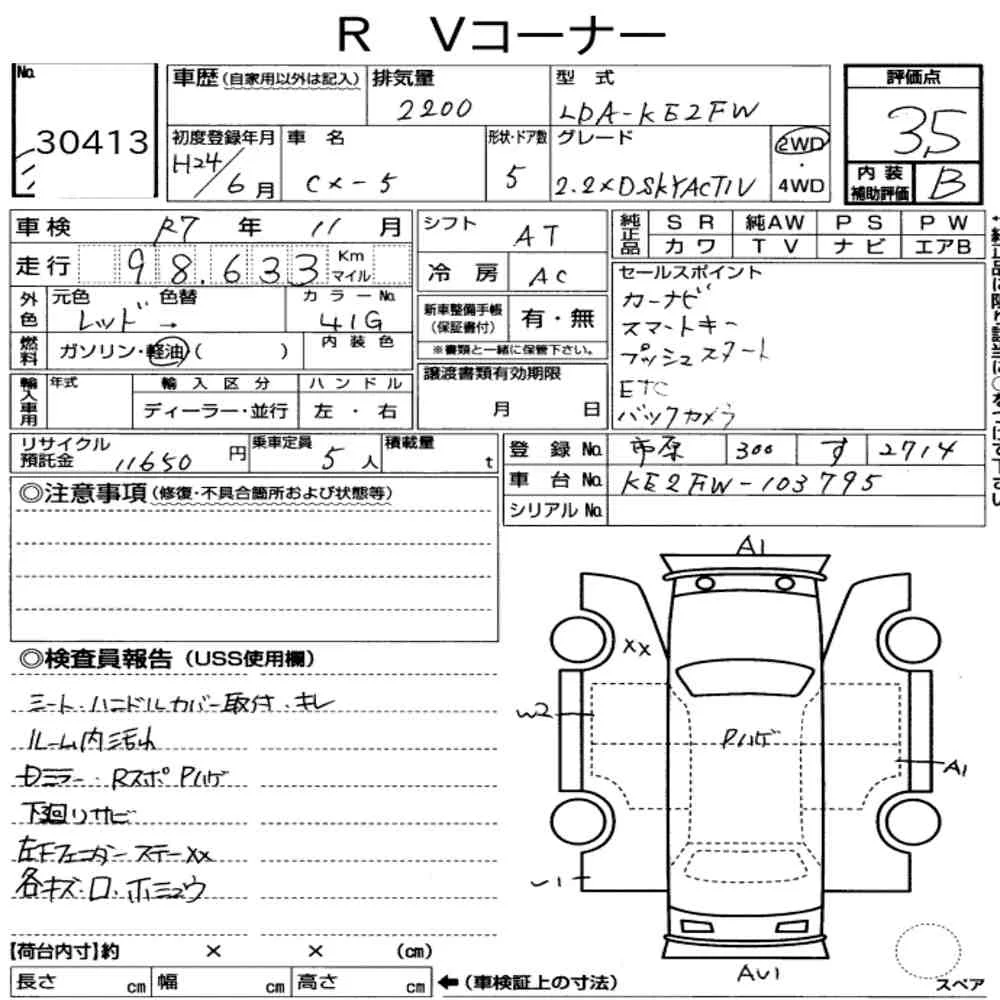 R Vコーナー
No.
30413
車歴(自家用以外は記入)
排気量
2200
型 式
LDA-KE2FW
評価点
3.5
初度登録年月
H24/6月
車 名
CX-5
形状・ドア数
5
グレード
2.2XDSKYACTIV
2WD
・
4WD
内 装
補助評価
B
車検 R7 年 11 月
走行 98.633 Km
マイル
シフト AT
冷 房 AC
純正品
SR 純AW PS PW
カワ TV ナビ エアB
外色
元色 色替
レッド →
カラーNo.
41G
新車整備手帳
(保証書付)
有・無
※書類と一緒に保管下さい。
セールスポイント
カーナビ
スマートキー
プッシュスタート
ETC
バックカメラ
燃料
ガソリン・軽油( )
内装色
輸入車用
年式
輸入区分
ディーラー・並行
ハンドル
左・右
譲渡書類有効期限
月 日
リサイクル
預託金 11650 円
乗車定員 5 人
積載量 t
登 録 No. 市原 300 す 2714
車 台 No. KE2FW-103795
シリアル No.
◎注意事項(修復・不具合箇所および状態等)
◎検査員報告(USS使用欄)
シート・ハンドルカバー取付・キレ
ルーム内汚れ
Dミラー・Rスポ Pハゲ
下廻りサビ
左Fフェンダーステー XX
各キズ・凹・ホシュウ
A1
XX
W2
Pハゲ
A1
U1
AU1
スペア
【荷台内寸】約 × × (cm)
長さ cm 幅 cm 高さ cm
←(車検証上の寸法)